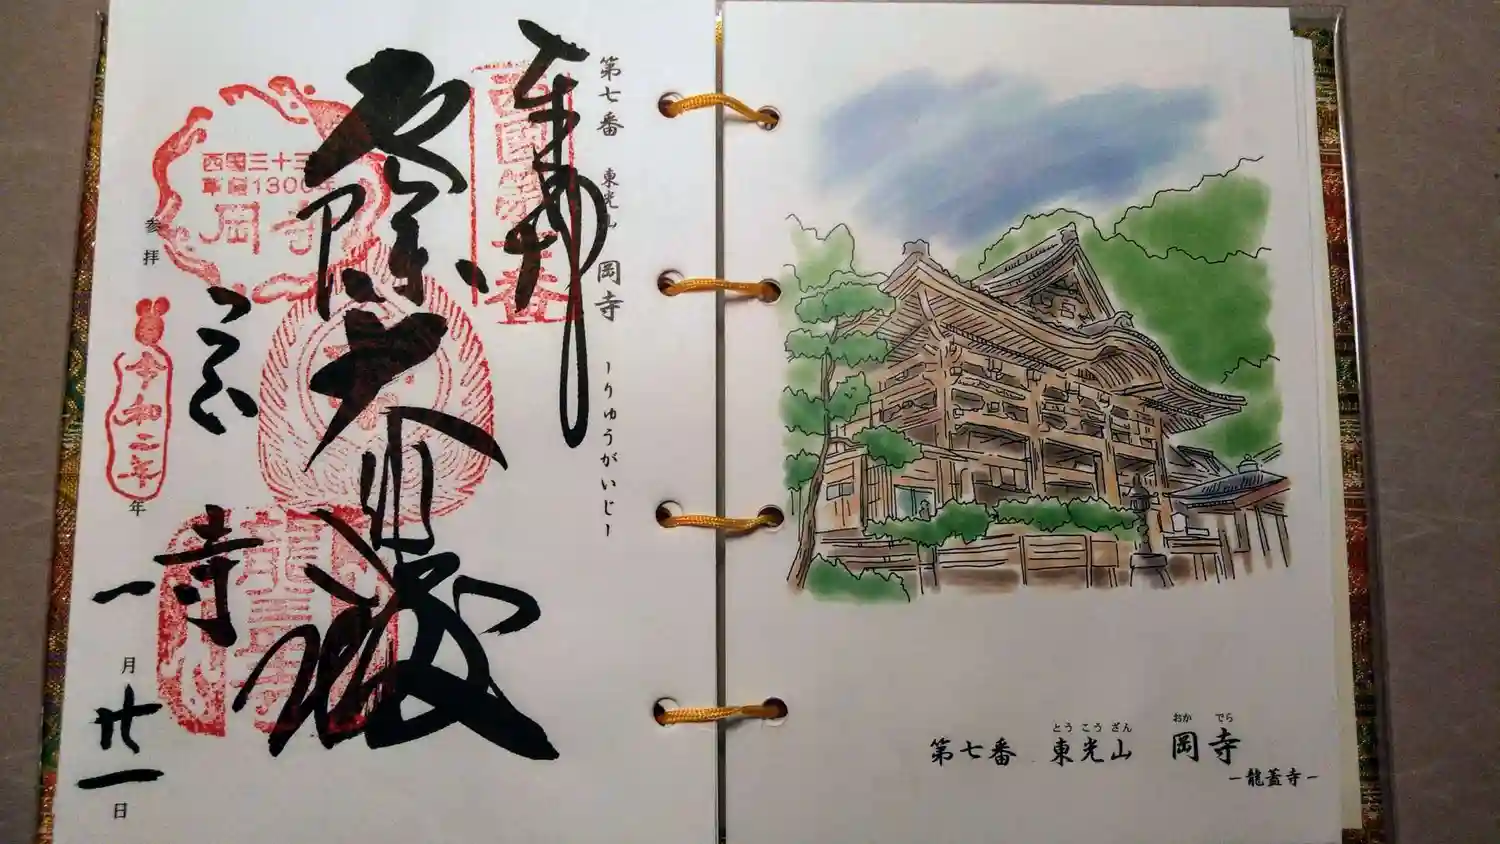 第七番 東光山 岡寺 ーりゅうがいじー
奉拝
厄除大
岡寺
西國三十三
草創1300年
岡寺
参拝 令和二年 年 一月廿一日
第七番 東光山 岡寺
とうこうざん おかでら
ー龍蓋寺ー